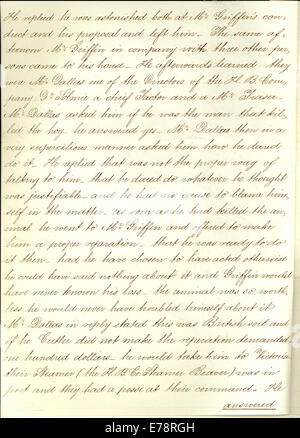 He replied he was astonished both at Mr Griffin's con,
duct and his proposal and left him. The same af,
ternoon Mr Griffin in company with three other per,
sons came to his house. He afterwards learned they
were Mr Dallas one of the Directors of the H B Com,
pany Dr Tolmie a chief Factor and a Mr Fraser
Mr Dallas asked him if he was the man that kil,
led the hog he answered yes. Mr Dallas then in a
very supercilious manner asked him how he dared
do it. He replied that was not the proper way of
talking to him, that he dared do whatever he thought
was justifiable and he had no cause to blame him,
self in the matter. as soon as he had killed the an,
imal he went to Mr Griffin and offered to make
him a proper reparation. that he was ready to do
it then. had he have chosen to have acted otherwise
he would have said nothing about it and Griffin would
have never known his loss. the animal was so worth,
less he would never have troubled himself about it
Mr Dallas in reply stated this was British soil and
if he Cutler did not make the reparation demanded
one hundred dollars. he would take him to Victoria
their Steamer (the H B Co Steamer Beaver) was in
port and they had a posse at their command. He
answered
alamy
E78RGH